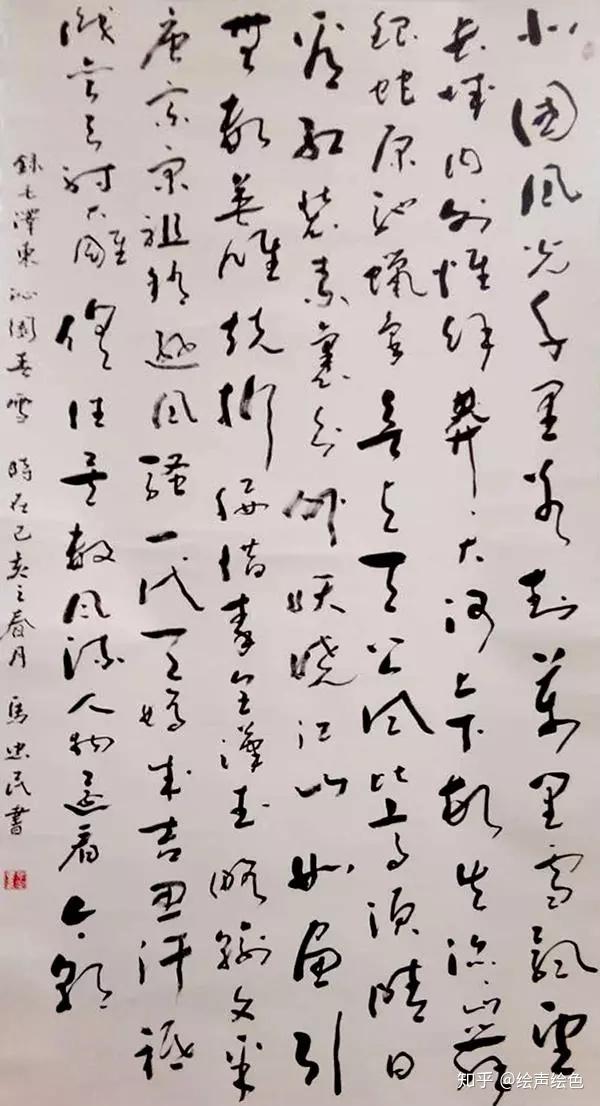 北国风光千里冰封萬里雪飄望
长城内外惟余莽、大河上下顿失滔、山舞
银蛇原驰蜡象欲与天公试比高须晴日
看红装素裹分外妖娆江山如画引
無数英雄竞折腰惜秦皇漢武略输文采
唐宗宋祖稍逊风骚一代天骄成吉思汗祗
識弯弓射大雕俱往矣数风流人物還看今朝
録毛澤東沁園春雪 時在己亥之春月 馬忠民書
知乎 @绘声绘色